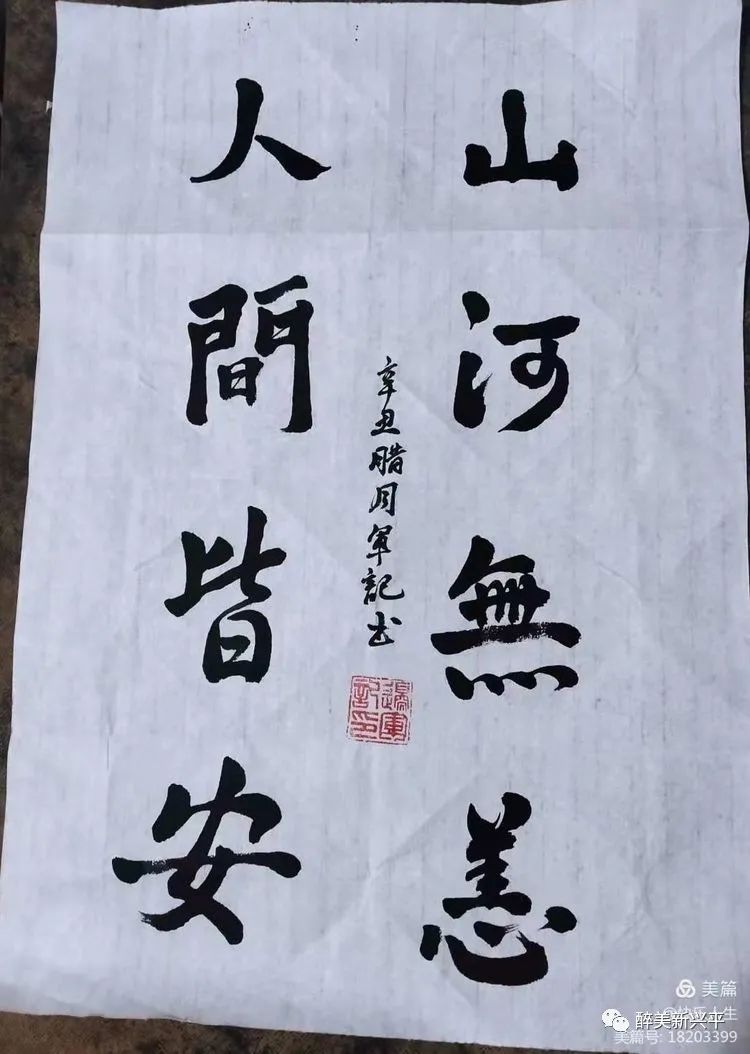 山河無恙
人間皆安
辛丑腊月軍記书
美篇
醉美新兴平
美篇号: 18203399